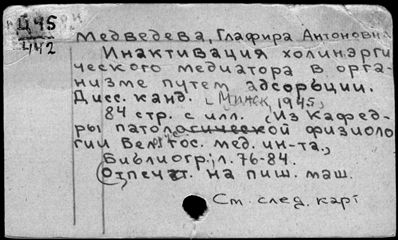 Ц 45
442
Медведева, Глафира Антоновна
Инактивация холинэрги
ческого медиатора в орга-
низме путем адсорбции.
Дисс. канд. Минск, 1945,
84 стр. с илл. (Из Кафед-
ры патологической физиоло
гии Бел. гос. мед. ин-та.,
Библиогр.: л. 76-84.
Отпечат. на пиш. маш.
См. след. карт